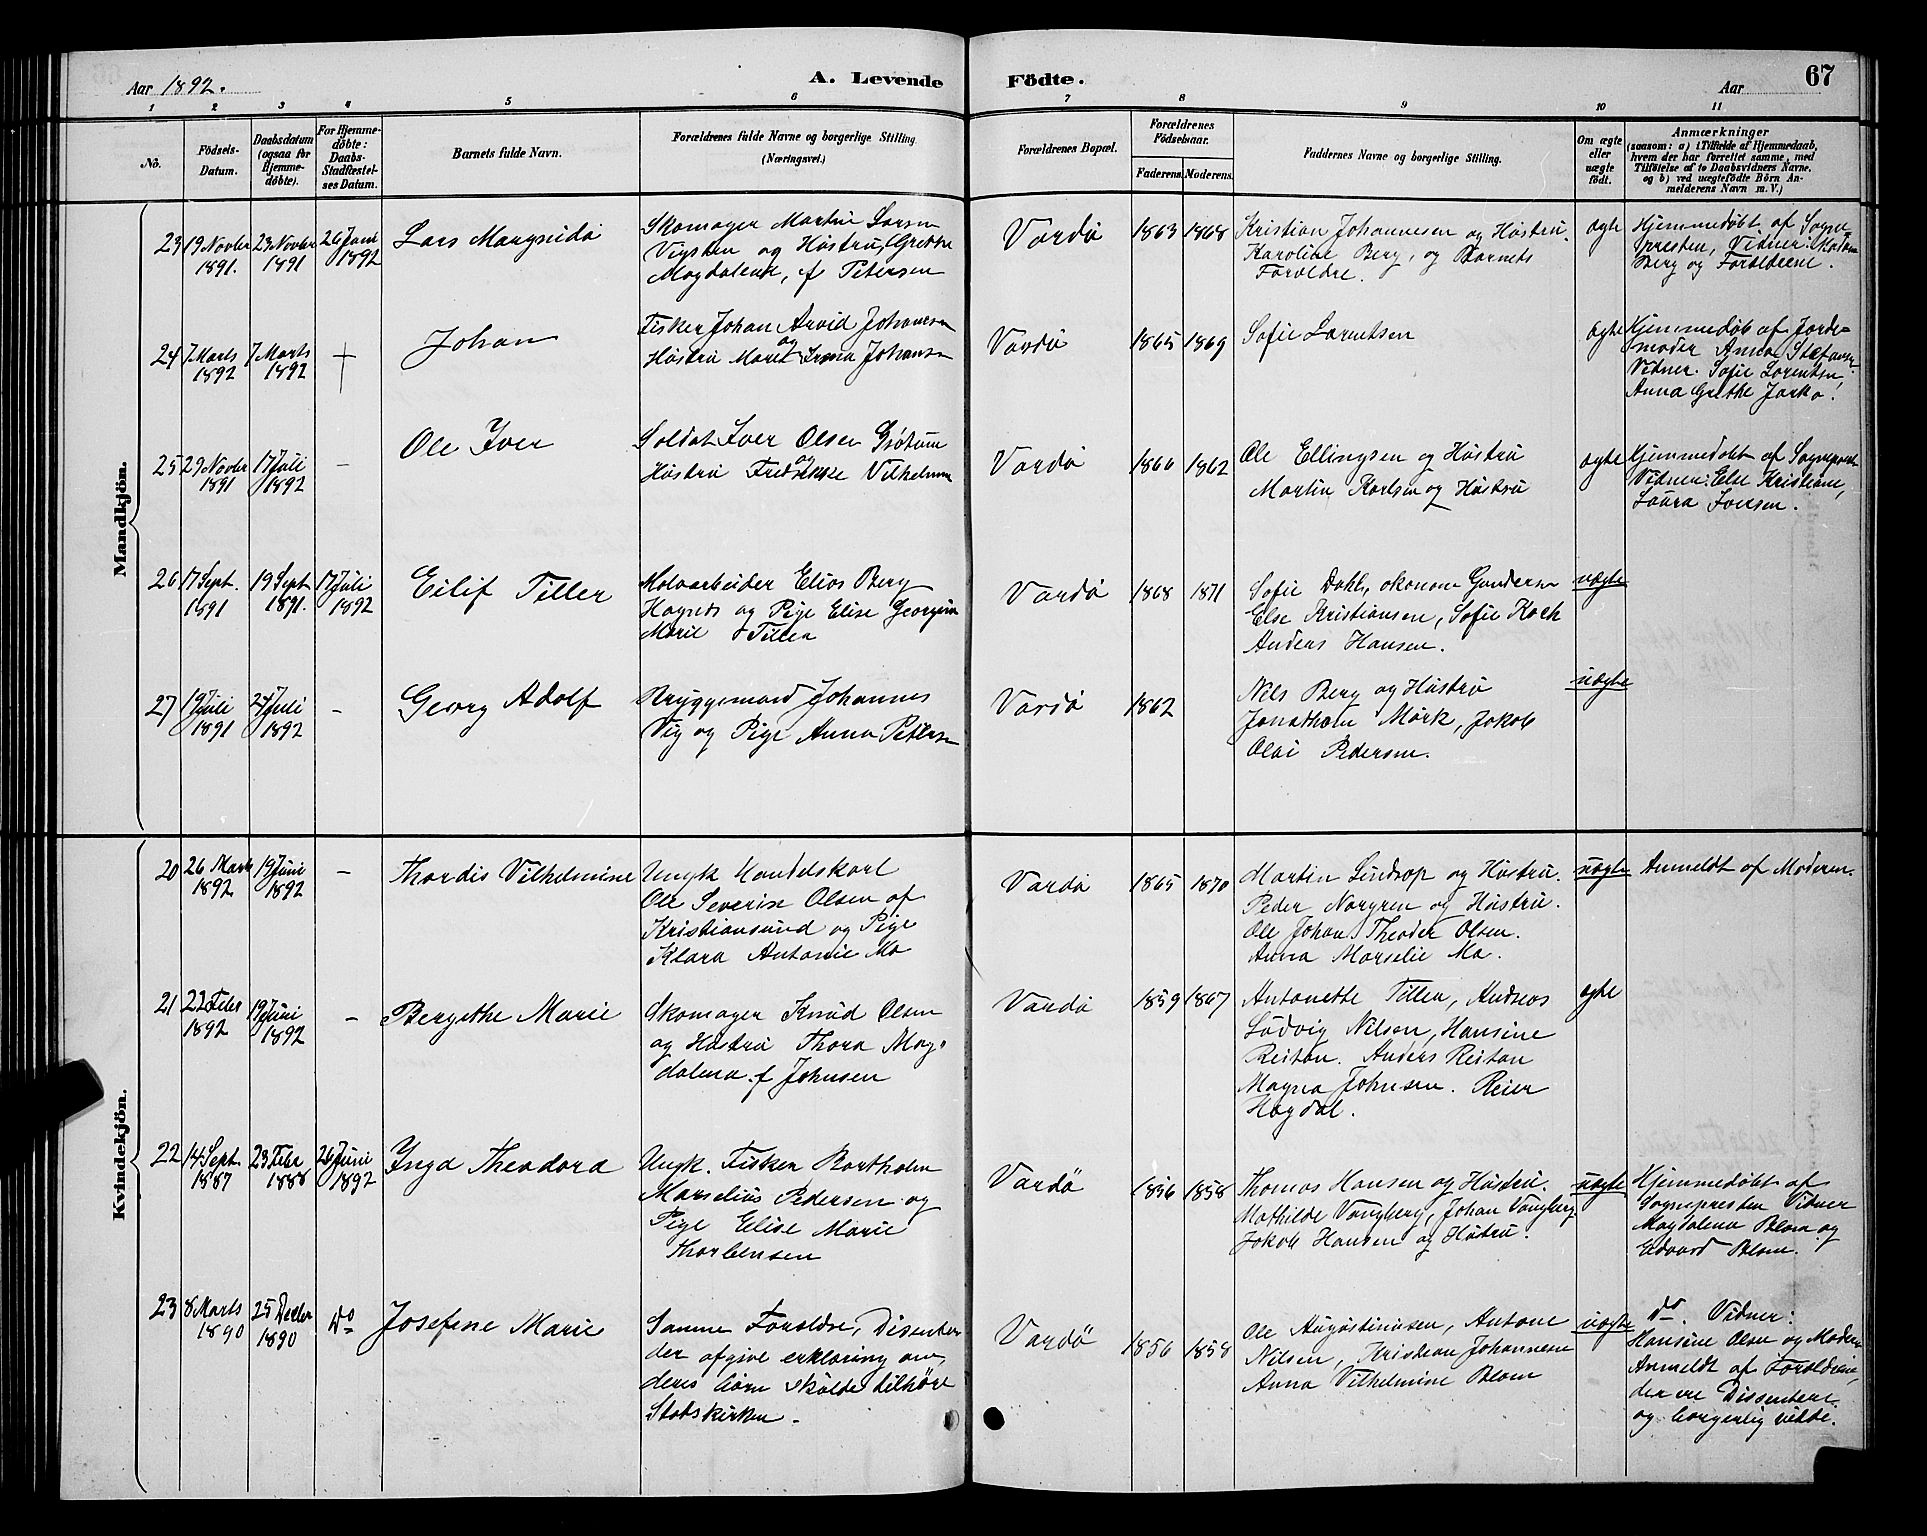 Aar 1892.
A. Levende Födte.
Aar
67
1 2 3 4 5 6 7 8 9 10 11
No.
Födsels-
Datum.
Daabsdatum
(ogsaa for
Hjemme-
döbte).
For Hjemme-
döbte:
Daabs-
Stadfæstel-
ses Datum.
Barnets fulde Navn.
Forældrenes fulde Navne og borgerlige Stilling
(Næringsvei.)
Forældrenes Bopæl.
Forældrenes
Födselsaar.
Faderens. Moderens.
Faddernes Navne og borgerlige Stilling.
Om ægte
eller
uægte
født.
Anmærkninger
(saasom: a) i Tilfælde af Hjemmedaab,
hvem der har forrettet samme, med
Tilföielse af to Daabsvidners Navne.
og b) ved uægtefödte Börn An-
melderens Navn m. V.)
Mandkjön.
23 19 Novbr 1891. 23 Novbr 1891 26 Juni 1892
Lars
Skomager Martin Larsen
Vigsten og Hustru, Grethe
Magdalene, f. Petersen
Vardø 1863 1868
Kristian Johannesen og Hustru.
Karoline Berg, og Barnets
Forældre.
ægte
Hjemmedøbt af Sogne-
presten, Vidner:
Berg og Forældrene.
24 7 Marts 1892 7 Marts 1892 †
Johan
Fisker Johan Arvid Johansen
og
Hustru Maret Johansen
Vardø 1865 1869
Sofie Lorentsen
ægte
Hjemmedøb af Jorde-
moder Anna Stefansen
Vidner. Sofie Lorentsen,
Anna Grethe Jarko.
25 29 Novbr 1891 17 Juli 1892 -
Ole Iver
Soldat Iver Olsen Grøtum
og
Hustru Fredrikke Vilhelmine
Vardø 1866 1862
Ole Ellingsen og Hustru
Martin Karlsen og Hustru
ægte
Hjemmedøbt af Sognepresten
Vidner: Else Kristiane,
Laura Iversen.
26 17 Sept. 1891 19 Sept 1891. 17 Juli 1892
Eilif Tiller
Moloarbeider Elias Berg
Hagnes og Pige Elise Georgine
Marie Tiller
Vardø 1868 1871
Sofie Dahl, økonom Gundersen
Else Kristiansen, Sofie Koch
Anders Hansen.
uægte
27 19 Juli 1891 24 Juli 1892 -
Georg Adolf
Bryggemand Johannes
Vig og Pige Anna Petersen
Vardø 1862
Nils Berg og Hustru
Jonathan Mørk, Jakob
Olai Pedersen.
uægte
Kvindekjön.
20 26 Marts 1892 19 Juni 1892 -
Thordis Vilhelmine
Ungk Handelskarl
Ole Severin Olsen af
Kristiansund og Pige
Klara Antonie Mo
Vardø 1865 1870
Martin Lindrop og Hustru.
Peder Norgren og Hustru.
Ole Johan Theodor Olsen.
Anna Marselie Mo.
uægte
Anmeldt af Moderen.
21 22 Febr 1892 19 Juni 1892 -
Bergithe Marie
Skomager Knud Olsen
og Hustru Thora Mag-
dalena f Johnsen
Vardø 1859 1867
Antonette Tiller, Andreas
Ludvig Nilsen, Hansine
Reitan. Anders Reitan
Magna Johnsen. Reier
Hagdal.
ægte
22 14 Sept 1887 23 Febr 1888 26 Juni 1892
Inga Theodora
Ungk. Fisker Bartholm
Marselius Pedersen og
Pige Elise Marie
Thorbensen
Vardø 1856 1858
Thomas Hansen og Hustru.
Mathilde Vangberg, Johan Vangberg
Jakob Hansen og Hustru.
uægte
Hjemmedøbt af
Sognepresten Vidner
Magdalena Blom og
Edvard Blom.
23 8 Marts 1890 25 Decbr 1890 do
Josefine Marie
Samme Forældre, Dissenter
der afgive erklæring om,
deres børn skulde tilhøre
Statskirken.
Vardø 1856 1858
Ole Augustinusen, Antone
Nilsen, Kristian Johannesen
Anna Vilhelmine Blom
uægte
do. Vidner:
Hansine Olsen og Moderen
Anmeldt af Forældrene,
der ere Dissentere
og borgerlig viede.